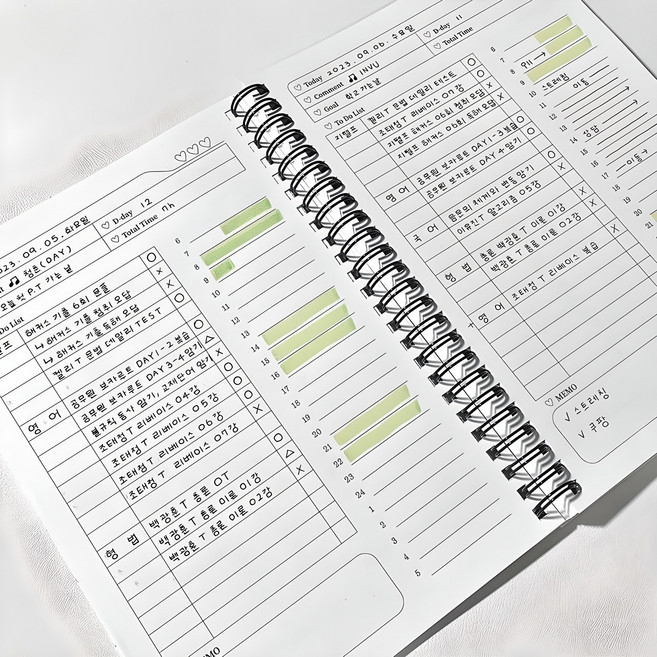 2023.09.05.화요일
D-day 12
청춘(DAY)
Total Time 7h
오늘 첫 P.T 가는 날
Do List
해커스 기출 6회 모풀 O
나 해커스 기출 청취 오답 X
나 해커스 기출 독해 오답 X
켈리T 문법 데일리 TEST O
영어 공무원 보카르트 DAY1-2 복습 O
공무원 보카르트 DAY3-4 암기 △
불규칙 동사 암기, 교재단어 암기 X
조태정T 리베이스 04강 O
조태정T 리베이스 05강 O
조태정T 리베이스 06강 O
조태정T 리베이스 07강 X
형법 백광훈T 총론 OT O
백광훈T 총론 이론 01강 △
백광훈T 총론 이론 02강 X
MO
6
7
8
9
10
11
12
13
14
15
16
17
18
19
20
21
22
23
24
1
2
3
4
5
Today 2023.09.06. 수요일
D-day 11
Comment INVU
Total Time
Goal 학교가는날
To Do List
지텔프 켈리T 문법 데일리 테스트 O
조태정T 리베이스 07강 O
지텔프 해커스 06회 청취 오답 X
지텔프 해커스 06회 독해 오답 X
영어 공무원 보카르트 DAY 1-3 복습 O
공무원 보카르트 DAY 4 암기 O
국어 음운의 체계와 변동 암기 X
이유진T 알고리즘 05강 X
형법 총론 백광훈T 이론 01강 O
백광훈T 총론 이론 02강 X
영어 조태정T 리베이스 복습 X
MEMO
√ 스트레칭
√ 쿠팡
6
7
8
9
10 스트레칭
11 이동
12
13
14 상담
15
16
17 이동
18
19
20
21